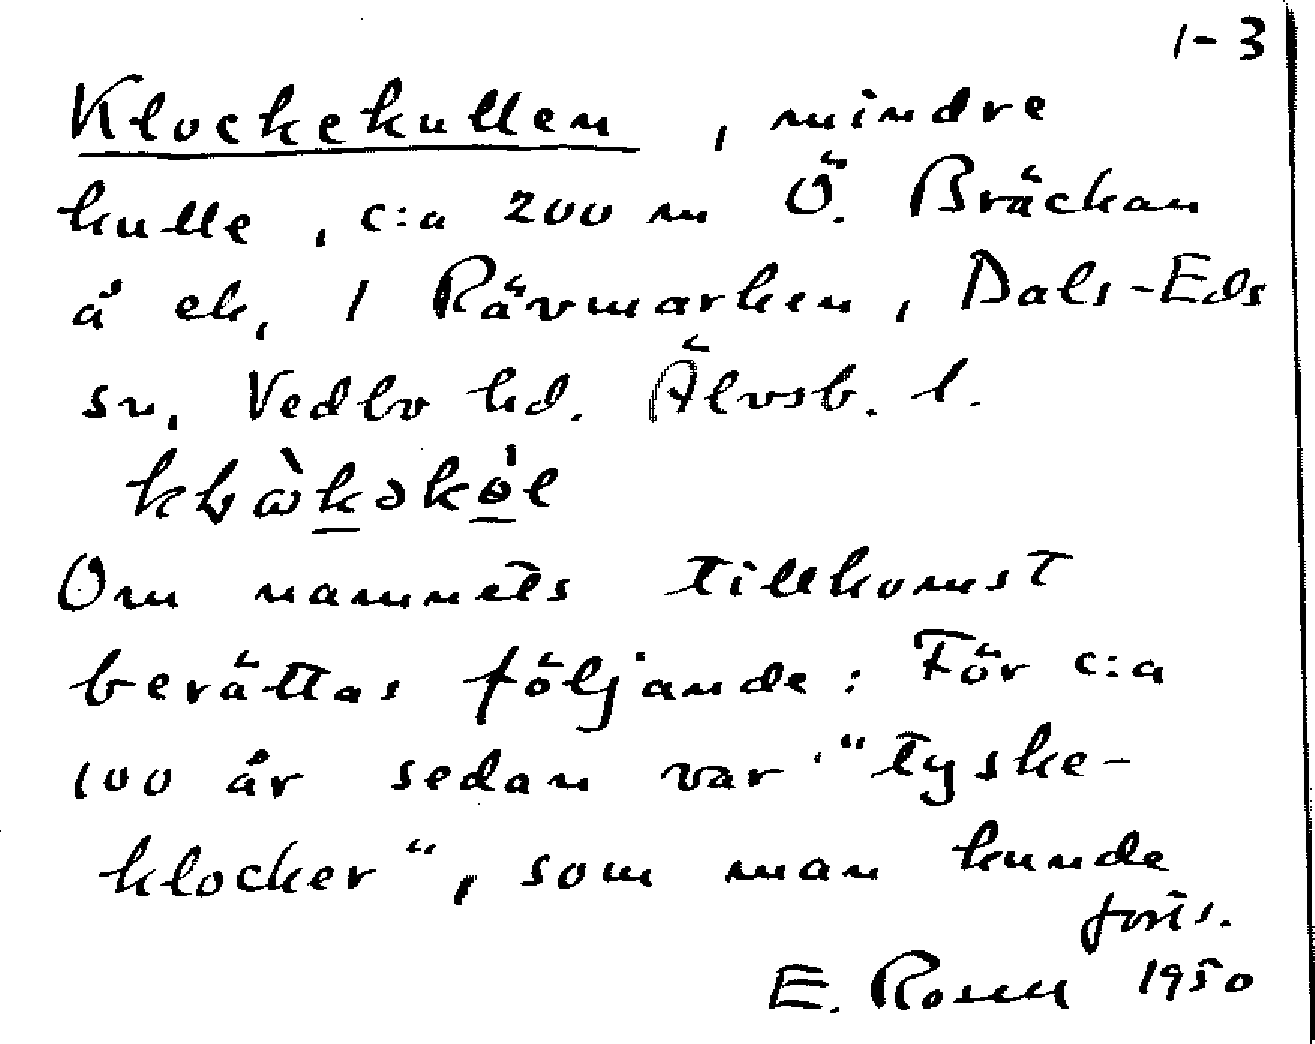 1-3
Klockekullen, mindre
kulle, c:a 200 m Ö. Bräckan
å ek, 1 Rävmarken, Dals-Eds
sn, Vedbo hd. Älvsb. l.
Om namnets tillkomst
berättas följande: För c:a
100 år sedan var "tyske-
klocker", som man kunde
forts.
E. Rosell 1950